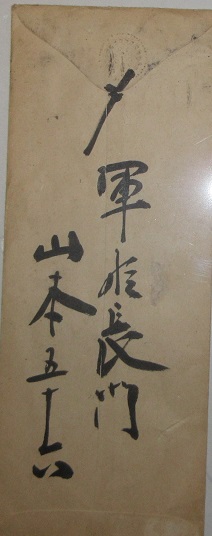 〆
軍艦長門
山本五十六